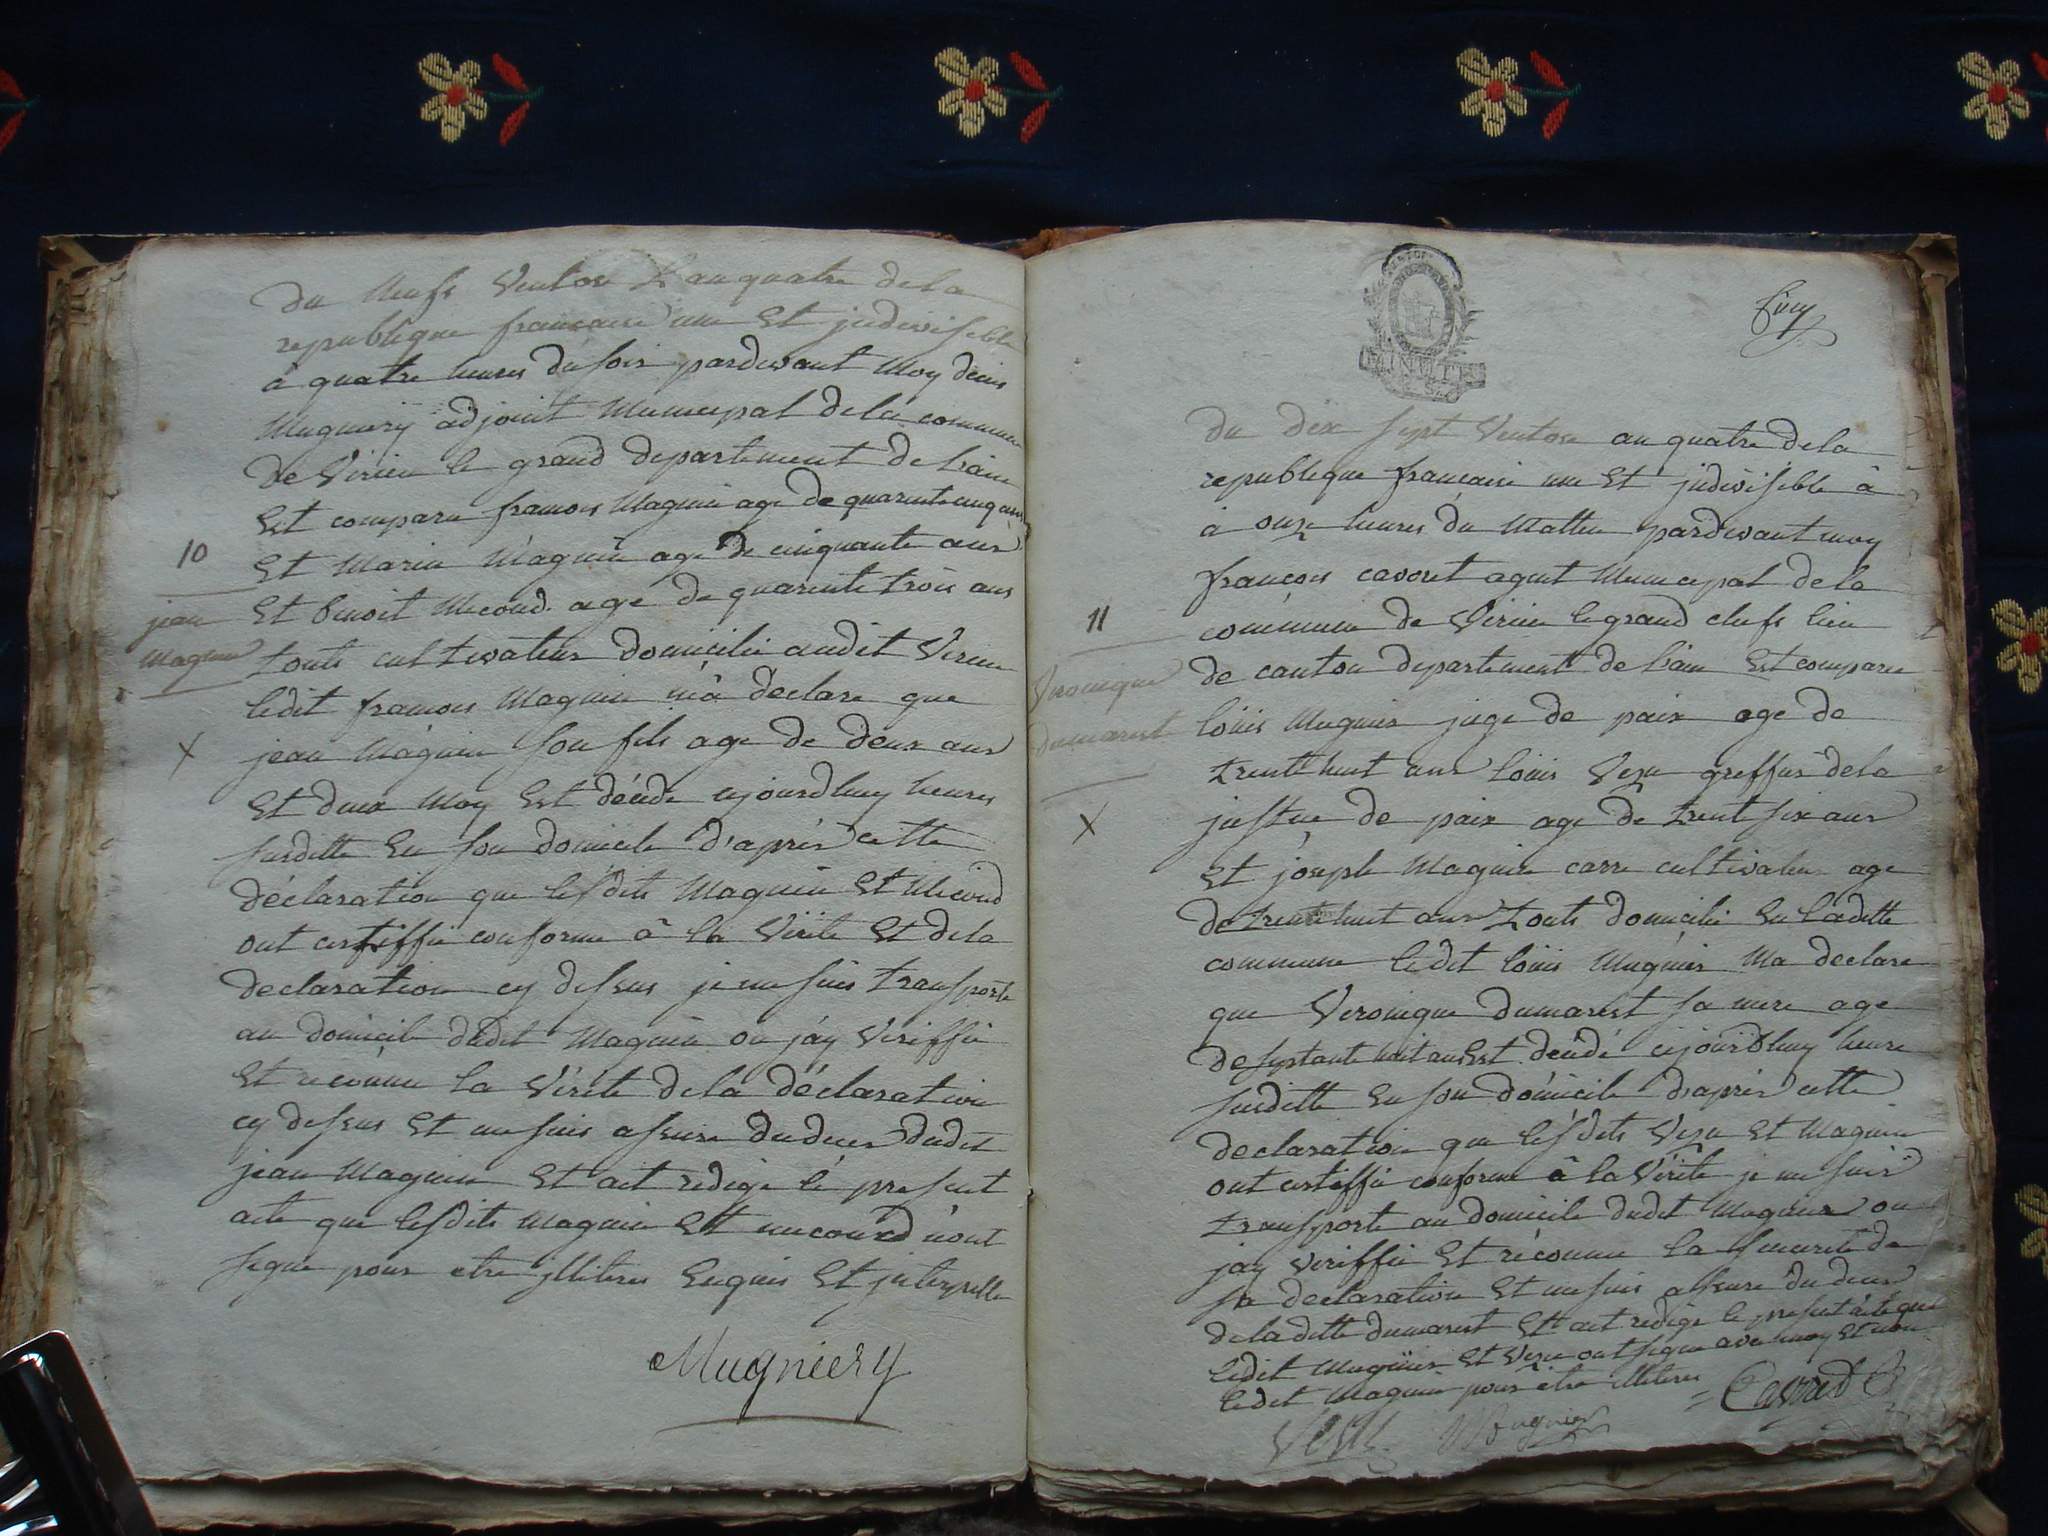 du Neufs Ventose L'an quatre de la
republique francaise une Et jndivisible
à quatre heures du soir pardevant Moy denis
Mugniery adjoint Municipal de la commune
de Virieu le grand departement de L'ain
Est comparu francois Maguin age de quarente cinq ans
10
Et Marin Maguin age de cinquante ans
jean
Maguin
Et benoit Mecoud age de quarente trois ans
touts cultivateur domicilié audit Virieu
ledit francois Maguin m'à declare que
X
jean Maguin son fils age de deux ans
Et deux Moy Est décédé cejourdhuy heures
susditte En son domicile d'aprés cette
déclaration que lesdits Maguin Et Mecoud
ont certiffié conforme â la Vérité Et de la
declaration cy dessus je me suis transporté
au domicile dudit Maguin ou j'ay Veriffié
Et reconnu la Vérité de la déclaration
cy dessus Et me suis assuré du deces dudit
jean Maguin Et ait redigé le present
acte que lesdits Maguin Et mecoud n'ont
signé pour etre jlliteres Enquis Et jnterpellé
Mugniery
MINUTE
du dix sept Ventose an quatre de la
republique francaise une Et jndivisible à
à onze heures du Mattin pardevant moy
françois cavoret agent Municipal de la
11
commune de Virieu le grand chefs lieu
Veronique
dumarest
de canton departement de L'ain Est comparu
loüis Mugnier juge de paix age de
trente huit ans loüis Vezu greffier de la
X
justice de paix age de trent six ans
Et joseph Maguin carre cultivateur age
de trente huit ans touts domicilié En laditte
commune ledit loüis Mugnier Ma declaré
que Veronique dumarest sa mere age
de septante huit ans Est décédé cejourdhuy heure
susditte En son domicile d'aprés cette
declaration que lesdits Vezu Et Maguin
ont certiffié conforme â la Vérité je me suis
transporté au domicile dudit Mugnier ou
jay veriffié Et réconnu la sincerité de
sa declaration Et me suis assuré du deces
de laditte dumarest Et ait redigé le present acte que
ledit Mugnier Et Vezu ont signé avec moy Et non
ledit Maguin pour etre jlliteres
Cavoret
Vezu Mougnier